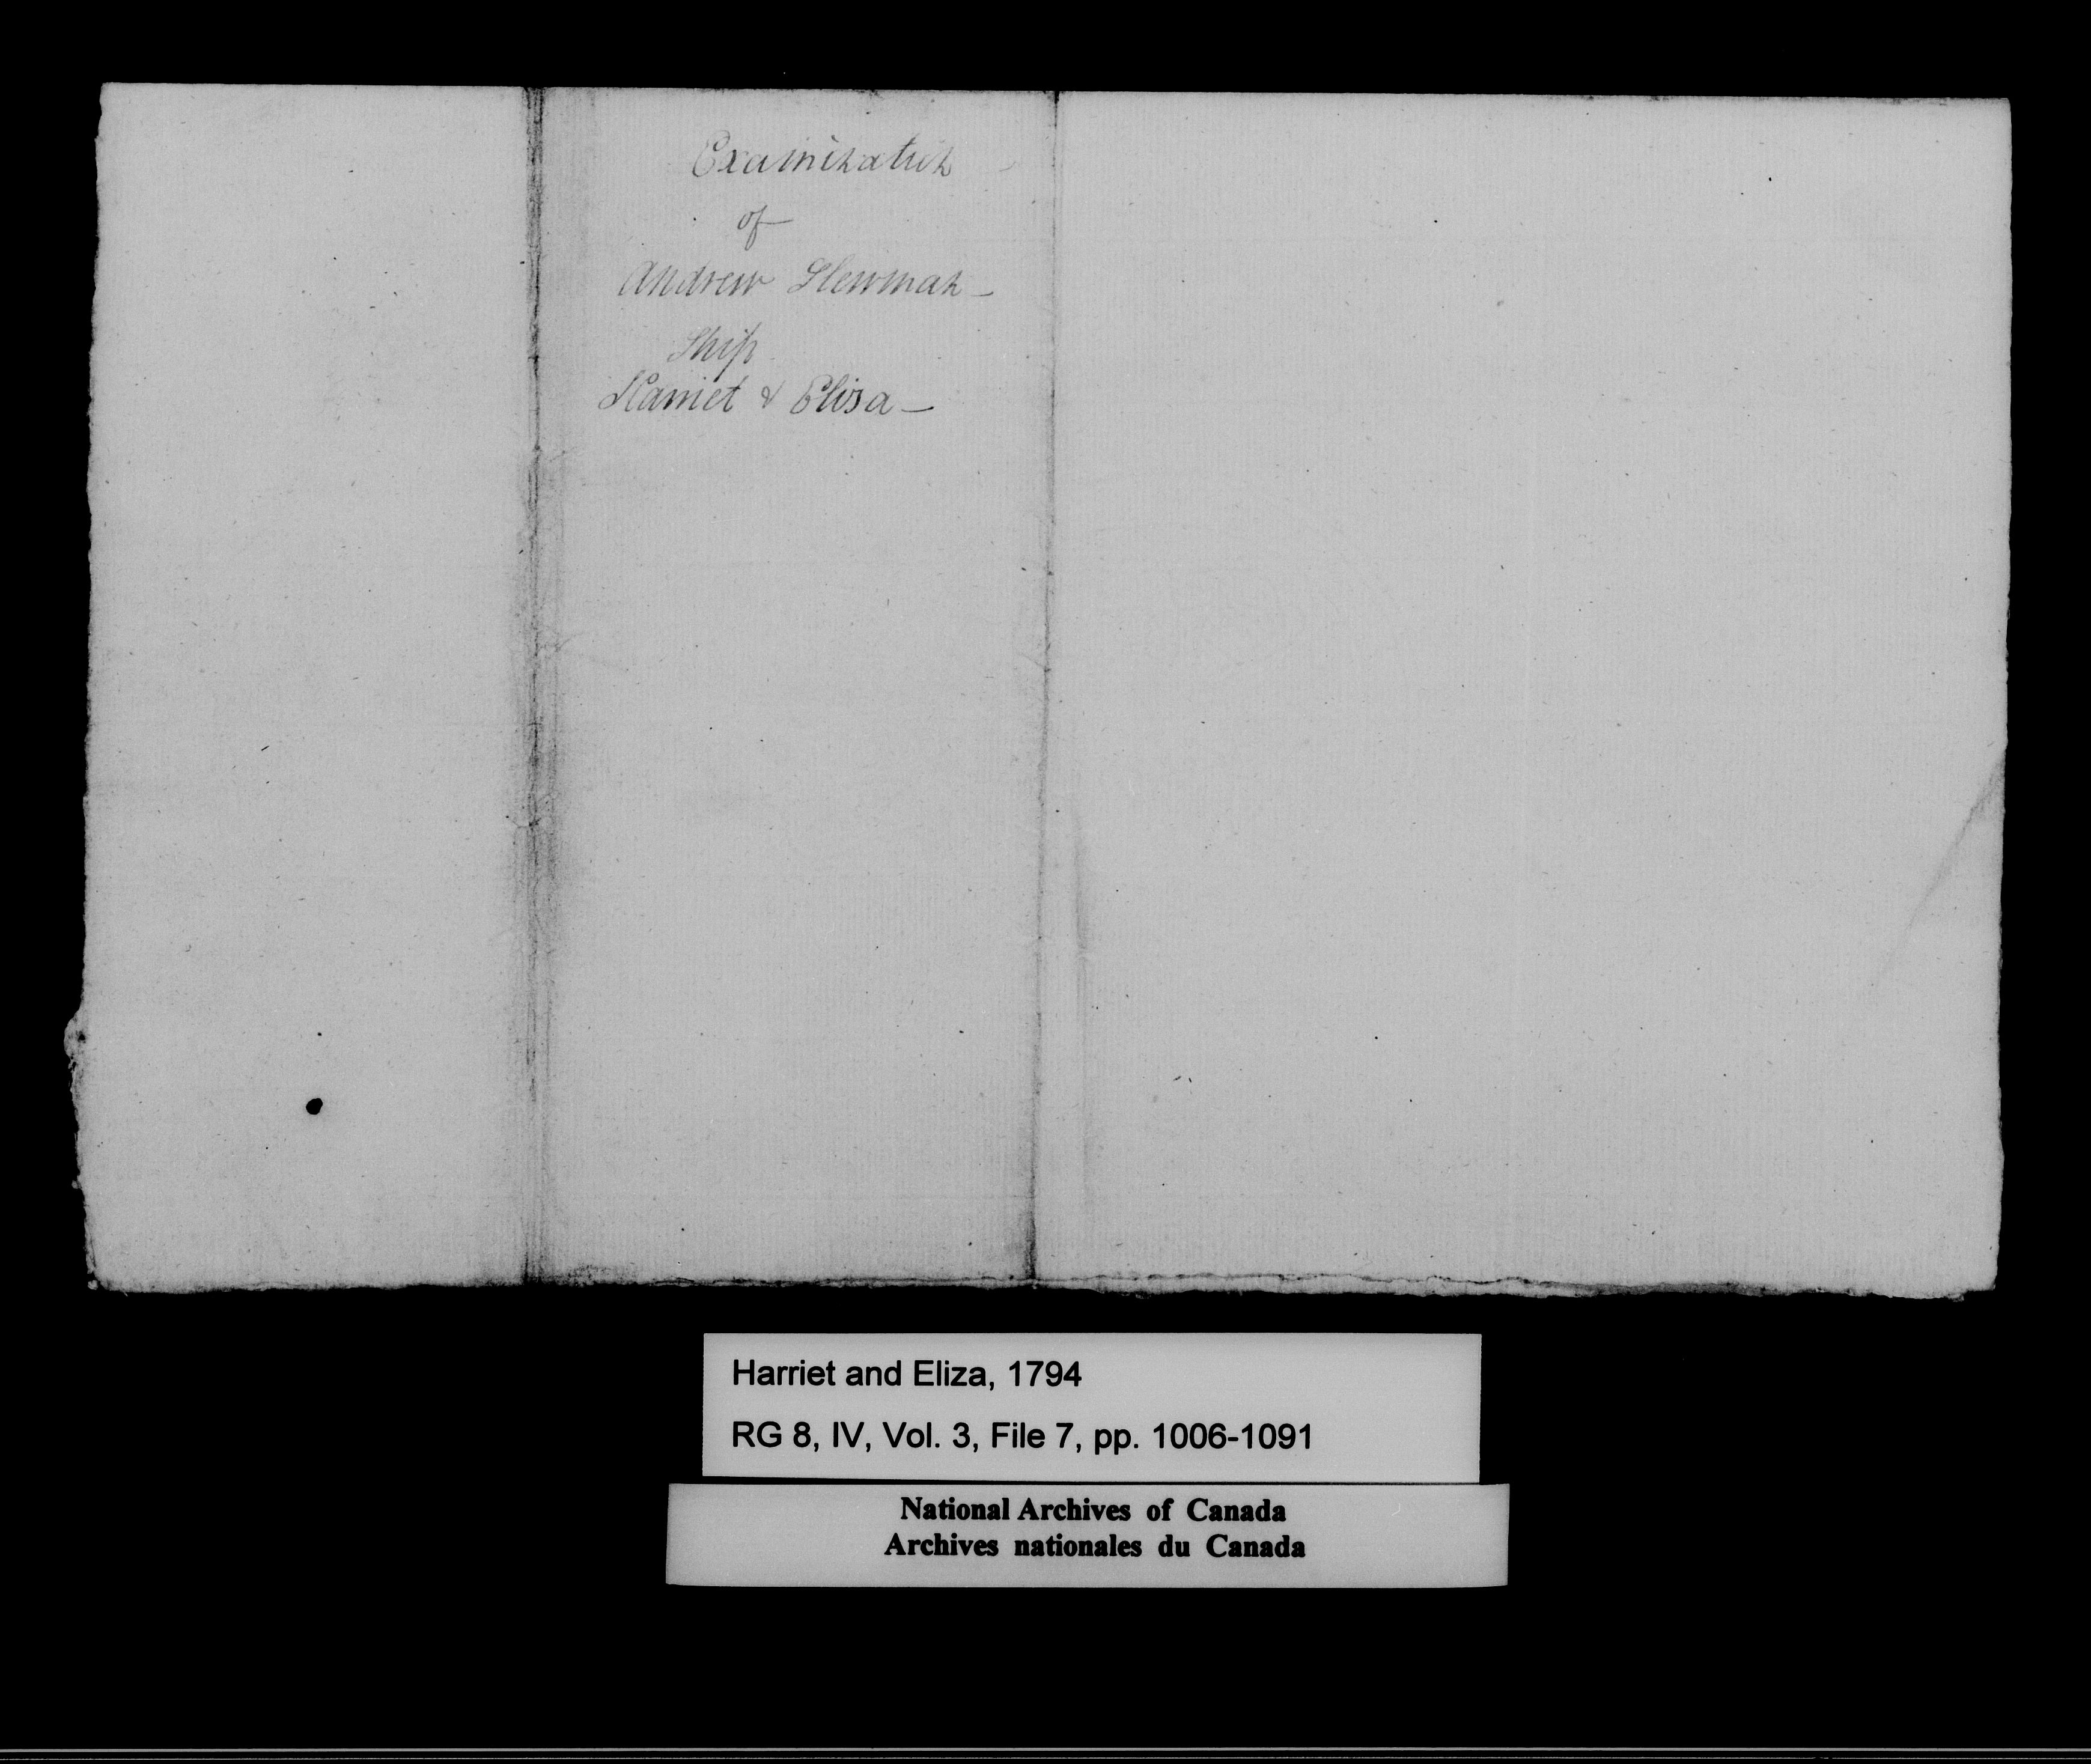 Examination
of
Andrew
Ship
Harriet & Eliza
Harriet and Eliza, 1794
RG 8, IV, Vol. 3, File 7, pp. 1006-1091
National Archives of Canada
Archives nationales du Canada